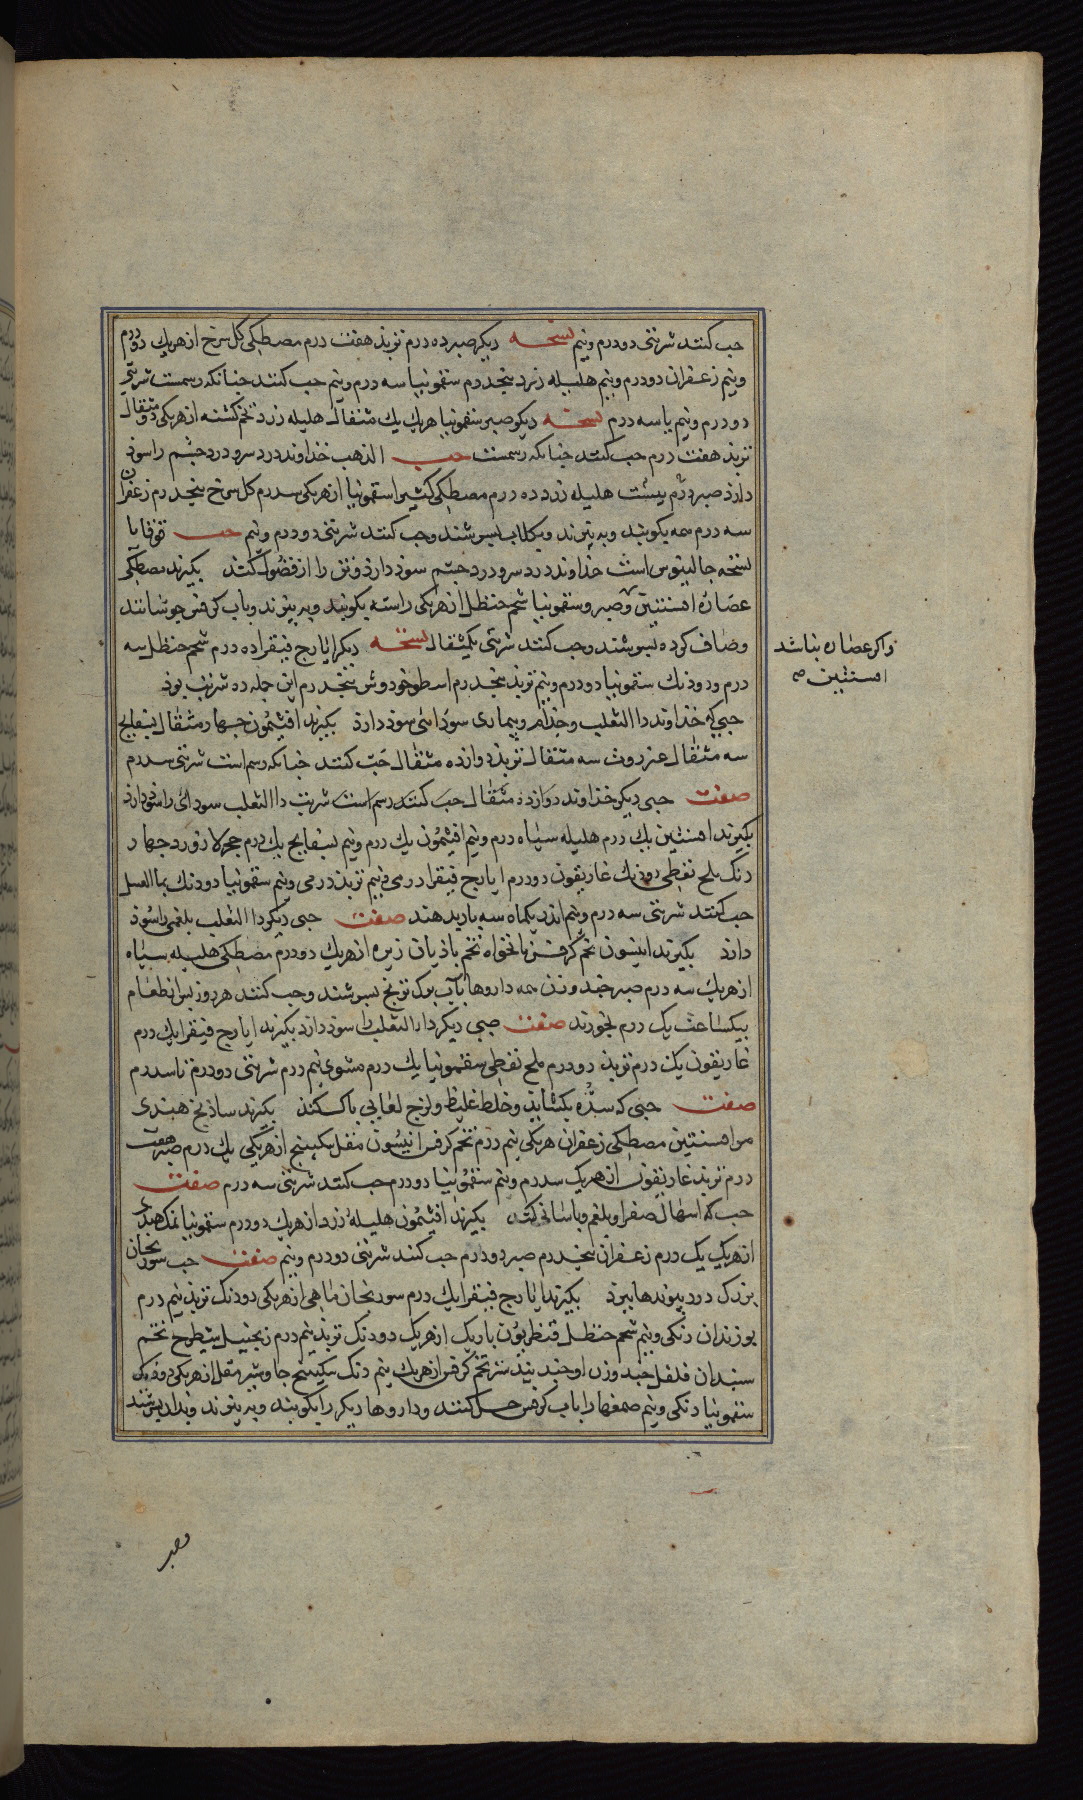 حب کنند شربتی دو درم ونیم نسخه دیکر صبر ده درم تربذ هفت درم مصطکی کل سرخ از هریك دو درم
ونیم زعفران دو درم ونیم هلیله زرد پنجدرم سقمونیا سه درم ونیم حب کنند جنانکه رسمست شربتی
دو درم ونیم یا سه درم نسخه دیکر صبر سقمونیا هریك یك مثقال هلیله زرد تخم کشنه از هریکی دو مثقال
تربذ هفت درم حب کنند جنانکه رسمست حب الذهب خذاوند درد سر ودرد جشم را سوذ
دارذ صبر درم بیست هلیله زرد ده درم مصطکی کثیرا سقمونیا از هریکی سدرم کل سرخ پنجدرم زعفران
سه درم همه بکوبند وبه بیزند وبکلاب بسرشند وحب کنند شربتی دو درم ونیم حب قوقایا
نسخه جالینوس است خذاوند درد سر ودرد جشم سوذ دارذ وتن را از فضول کنذ بکیرند مصطکی
عصاره افسنتین وصبر وسقمونیا شحم حنظل از هریکی راسته بکوبند وبه بیزند وباب کرفس جوشانند
وصاف کرده بسرشند وحب کنند شربتی یکمثقال نسخه دیکر ایارج فیقرا ده درم شحم حنظل سه
درم ودو دنك سقمونیا دو درم ونیم تربذ پنجدرم اسطوخودوس پنجدرم این جمله ده شربت بوذ
حبی که خذاوند دا الثعلب وجذام وبیماری سودایی سوذ دارذ بکیرند افیثمون جهار مثقال بسفایج
سه مثقال عنزروت سه مثقال تربذ دوازده مثقال حب کنند جنانکه رسم است شربتی سدرم
صفت حبی دیکر خذاوند دوازده مثقال حب کنند رسم است شربت دا الثعلب سودائی را سوذ دارذ
بکیرند افسنتین یك درم هلیله سیاه درم ونیم افیثمون یك درم ونیم بسفایج یك درم حجر لازورد جهار
دنك ملح نفطی دو دنك غاریقون دو درم ایارج فیقرا درمی ونیم تربذ درمی ونیم سقمونیا دو دنك بما العسل
حب کنند شربتی سه درم ونیم اندر یکماه سه بار بدهند صفت حبی دیکر دا الثعلب بلغمی را سوذ
دارذ بکیرند انیسون تخم کرفس نانخواه تخم باذیان زیره از هریك دو درم مصطکی هلیله سیاه
از هریك سه درم صبر جند وزن همه داروها بآب برك ترنج بسرشند وحب کنند هر روز پس از طعام
بیکساعت یك درم بخورند صفت حبی دیکر دا الثعلب را سوذ دارذ بکیرند ایارج فیقرا یك درم
غاریقون یك درم تربذ دو درم ملح نفطی سقمونیا یك درم مشوی نیم درم شربتی دو درم تا سدرم
صفت حبی که سده بکشاید وخلط غلیظ ولزج لعابی پاك کنذ بکیرند ساذنج هندی
مر افسنتین مصطکی زعفران هریکی نیم درم تخم کرفس انیسون مقل سکبینج از هریکی یك درم صبر هفت
درم تربذ غاریقون از هریك سدرم ونیم سقمونیا دو درم حب کنند شربتی سه درم صفت
حب که اسهال صفرا وبلغم وباسانی کند بکیرند افیثمون هلیله زرد از هریك دو درم سقمونیا نمك هندی
از هریك یك درم زعفران پنجدرم صبر دو درم حب کنند شربتی دو درم ونیم صفت حب سورنجان
بزرك درد پیوندها ببرذ بکیرند ایارج فیقرا یك درم سورنجان ماهی از هریکی دو دنك تربذ نیم درم
بوزندان دنکی ونیم شحم حنظل قنطریون باریك از هریك دو دنك تربذ نیم درم زنجبیل شیطرح تخم
سبندان فلفل جند وزن او جند بیذستر تخم کرفس از هریك نیم دنك سکبینج جاوشیر مقل از هریکی دو دنك
سقمونیا دنکی ونیم صمغها را باب کرفس حل کنند وداروها دیکر را بکوبند وبه بیزند وبدان بسرشند
واکر عصاره نباشد
افسنتین صح
وصبر